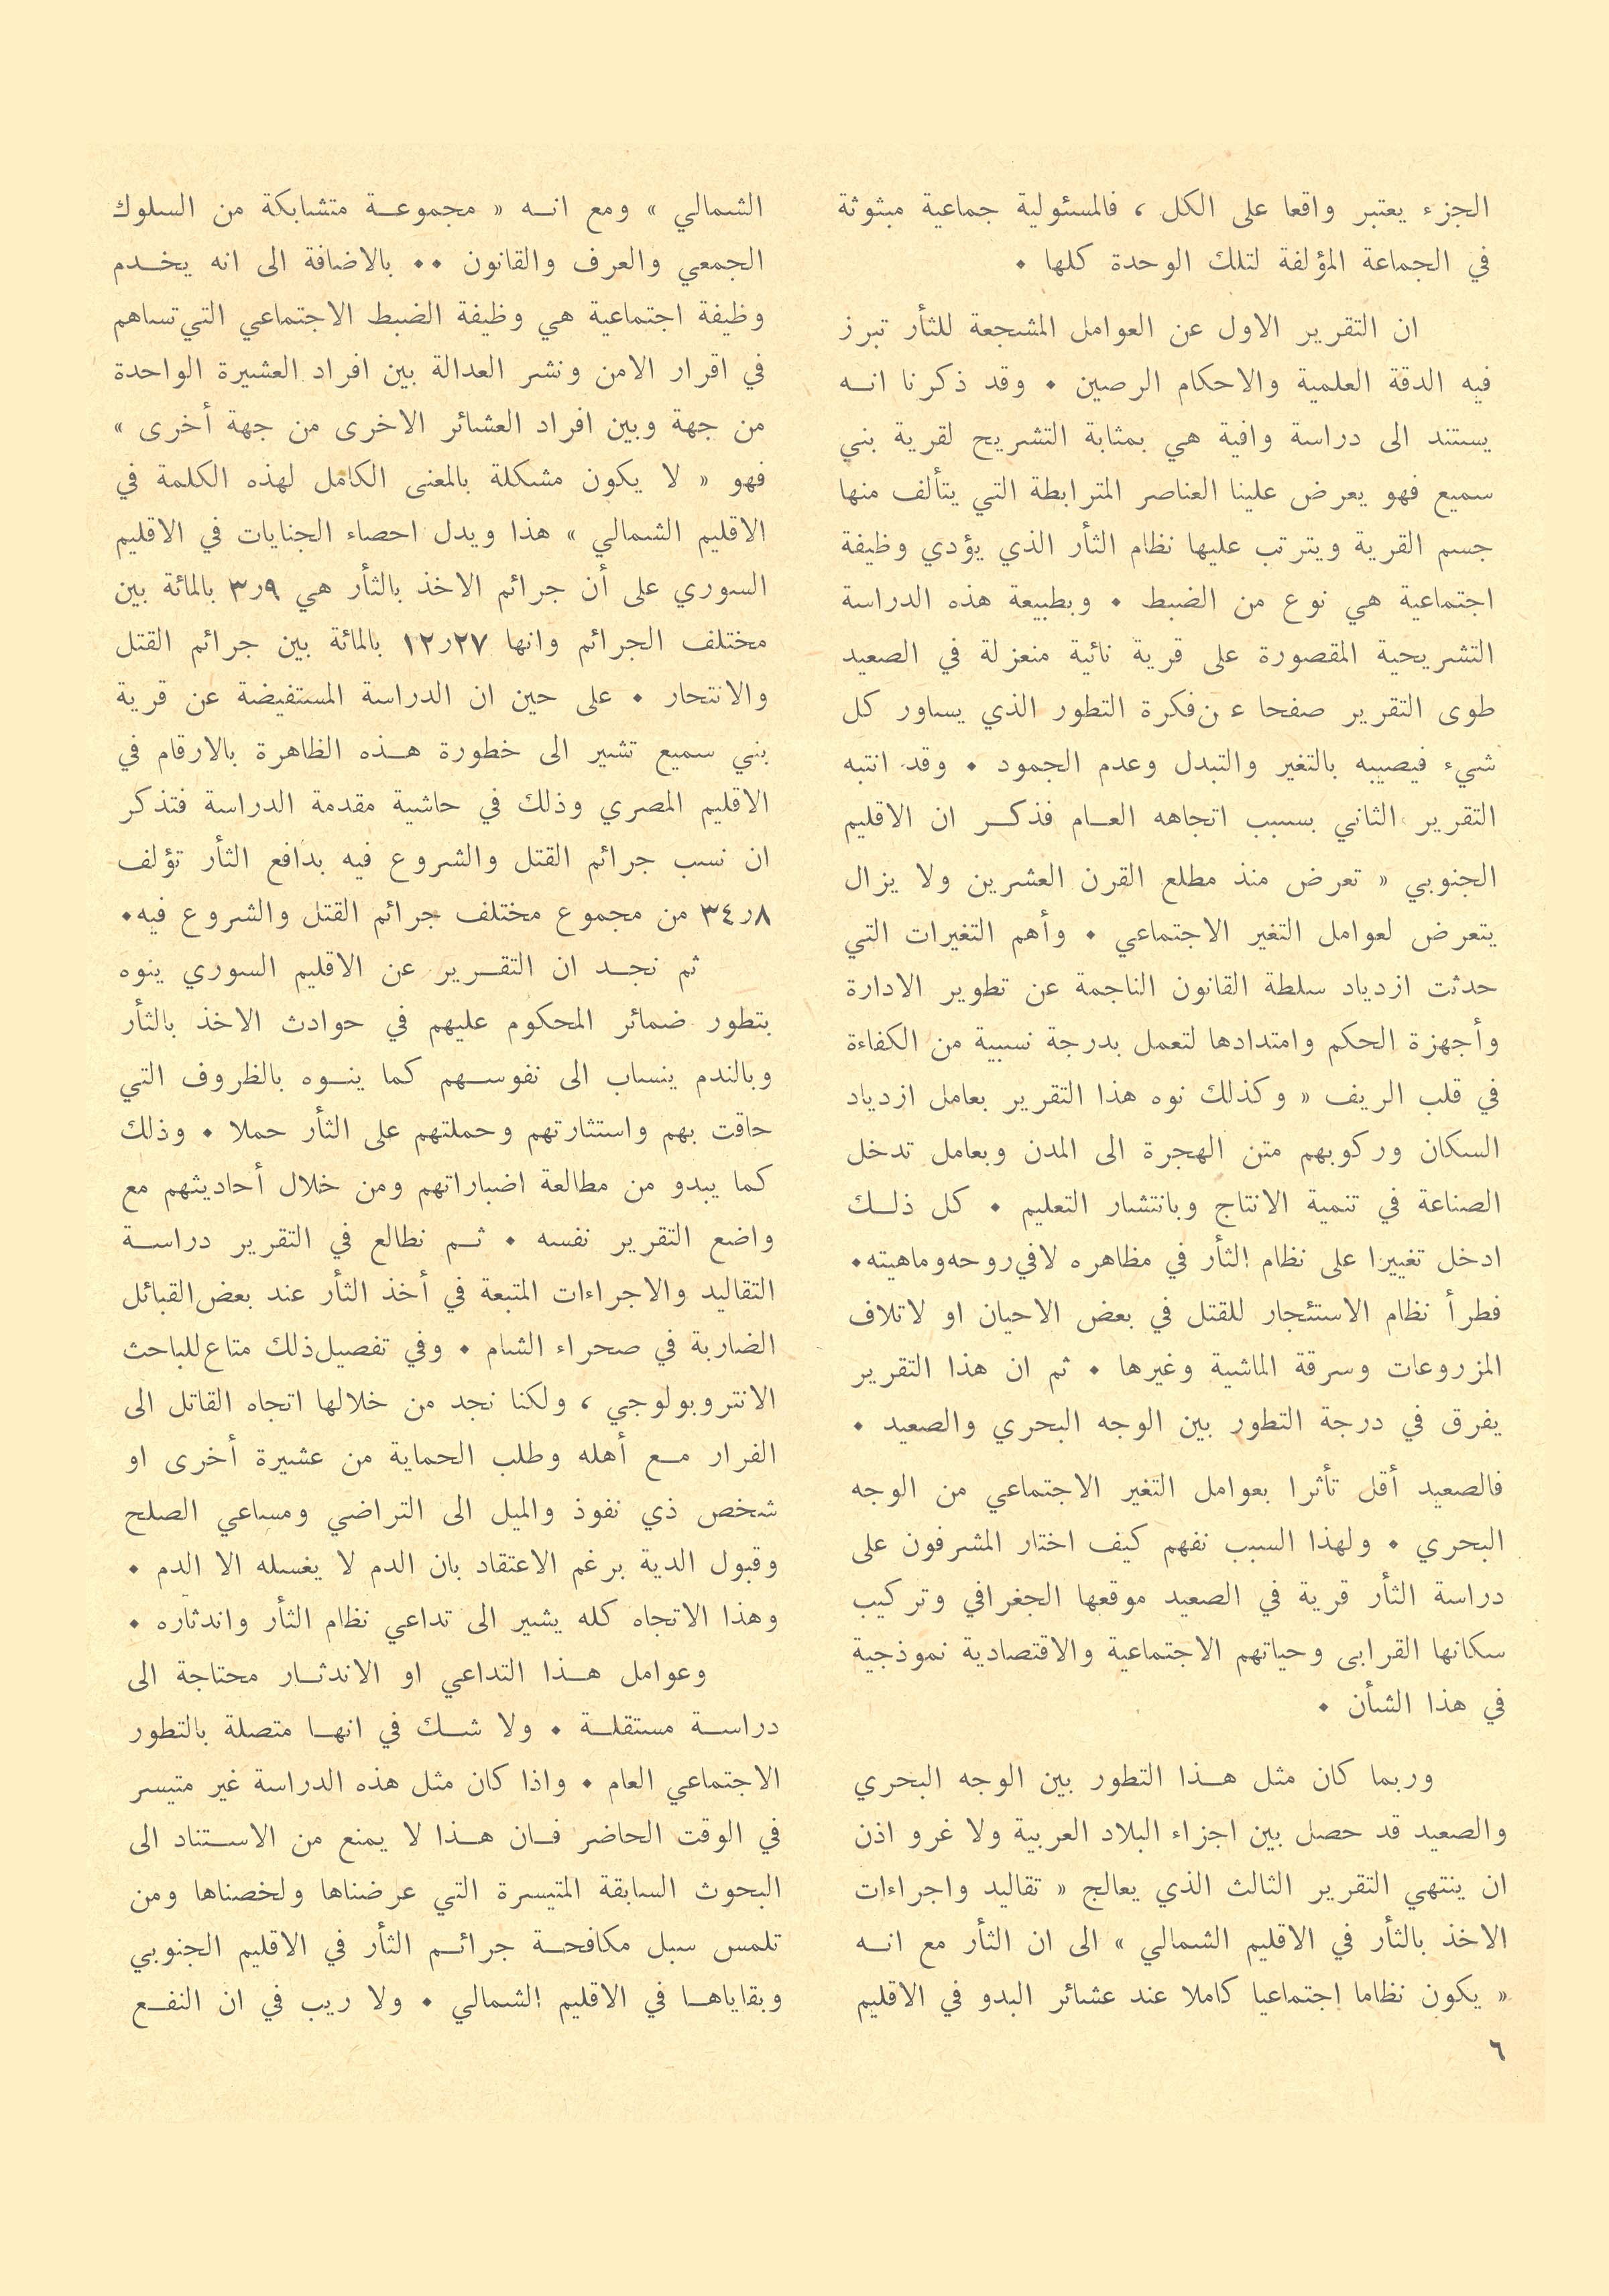 الجزء يعتبر واقعا على الكل ، فالمسئولية جماعية مبثوثة
في الجماعة المؤلفة لتلك الوحدة كلها .
ان التقرير الاول عن العوامل المشجعة للثأر تبرز
فيه الدقة العلمية والاحكام الرصين . وقد ذكرنا انه
يستند الى دراسة وافية هي بمثابة التشريح لقرية بني
سميع فهو يعرض علينا العناصر المترابطة التي يتألف منها
جسم القرية ويترتب عليها نظام الثأر الذي يؤدي وظيفة
اجتماعية هي نوع من الضبط . وبطبيعة هذه الدراسة
التشريحية المقصورة على قرية نائية منعزلة في الصعيد
طوى التقرير صفحا ء ن فكرة التطور الذي يساور كل
شيء فيصيبه بالتغير والتبدل وعدم الجمود . وقد انتبه
التقرير الثاني بسبب اتجاهه العام فذكر ان الاقليم
الجنوبي « تعرض منذ مطلع القرن العشرين ولا يزال
يتعرض لعوامل التغير الاجتماعي . وأهم التغيرات التي
حدثت ازدياد سلطة القانون الناجمة عن تطوير الادارة
وأجهزة الحكم وامتدادها لتعمل بدرجة نسبية من الكفاءة
في قلب الريف « وكذلك نوه هذا التقرير بعامل ازدياد
السكان وركوبهم متن الهجرة الى المدن وبعامل تدخل
الصناعة في تنمية الانتاج وبانتشار التعليم . كل ذلك
ادخل تغييرا على نظام الثأر في مظاهره لا في روحه وماهيته .
فطرأ نظام الاستئجار للقتل في بعض الاحيان او لاتلاف
المزروعات وسرقة الماشية وغيرها . ثم ان هذا التقرير
يفرق في درجة التطور بين الوجه البحري والصعيد .
فالصعيد أقل تأثرا بعوامل التغير الاجتماعي من الوجه
البحري . ولهذا السبب نفهم كيف اختار المشرفون على
دراسة الثأر قرية في الصعيد موقعها الجغرافي وتركيب
سكانها القرابى وحياتهم الاجتماعية والاقتصادية نموذجية
في هذا الشأن .
وربما كان مثل هذا التطور بين الوجه البحري
والصعيد قد حصل بين اجزاء البلاد العربية ولا غرو اذن
ان ينتهي التقرير الثالث الذي يعالج « تقاليد واجراءات
الاخذ بالثأر في الاقليم الشمالي » الى ان الثأر مع انه
« يكون نظاما اجتماعيا كاملا عند عشائر البدو في الاقليم
الشمالي » ومع انه « مجموعة متشابكة من السلوك
الجمعي والعرف والقانون .. بالاضافة الى انه يخدم
وظيفة اجتماعية هي وظيفة الضبط الاجتماعي التي تساهم
في اقرار الامن ونشر العدالة بين افراد العشيرة الواحدة
من جهة وبين افراد العشائر الاخرى من جهة أخرى »
فهو « لا يكون مشكلة بالمعنى الكامل لهذه الكلمة في
الاقليم الشمالي » هذا ويدل احصاء الجنايات في الاقليم
السوري على أن جرائم الاخذ بالثأر هي ٩ر٣ بالمائة بين
مختلف الجرائم وانها ٢٧ر١٢ بالمائة بين جرائم القتل
والانتحار . على حين ان الدراسة المستفيضة عن قرية
بني سميع تشير الى خطورة هذه الظاهرة بالارقام في
الاقليم المصري وذلك في حاشية مقدمة الدراسة فتذكر
ان نسب جرائم القتل والشروع فيه بدافع الثأر تؤلف
٨ر٣٤ من مجموع مختلف جرائم القتل والشروع فيه .
ثم نجد ان التقرير عن الاقليم السوري ينوه
بتطور ضمائر المحكوم عليهم في حوادث الاخذ بالثأر
وبالندم ينساب الى نفوسهم كما ينوه بالظروف التي
حاقت بهم واستثارتهم وحملتهم على الثأر حملا . وذلك
كما يبدو من مطالعة اضباراتهم ومن خلال أحاديثهم مع
واضع التقرير نفسه . ثم نطالع في التقرير دراسة
التقاليد والاجراءات المتبعة في أخذ الثأر عند بعض القبائل
الضاربة في صحراء الشام . وفي تفصيل ذلك متاع للباحث
الانتروبولوجي ، ولكنا نجد من خلالها اتجاه القاتل الى
الفرار مع أهله وطلب الحماية من عشيرة أخرى او
شخص ذي نفوذ والميل الى التراضي ومساعي الصلح
وقبول الدية برغم الاعتقاد بان الدم لا يغسله الا الدم .
وهذا الاتجاه كله يشير الى تداعي نظام الثأر واندثاره .
وعوامل هذا التداعي او الاندثار محتاجة الى
دراسة مستقلة . ولا شك في انها متصلة بالتطور
الاجتماعي العام . واذا كان مثل هذه الدراسة غير متيسر
في الوقت الحاضر فان هذا لا يمنع من الاستناد الى
البحوث السابقة المتيسرة التي عرضناها ولخصناها ومن
تلمس سبل مكافحة جرائم الثأر في الاقليم الجنوبي
وبقاياها في الاقليم الشمالي . ولا ريب في ان النفع
٦